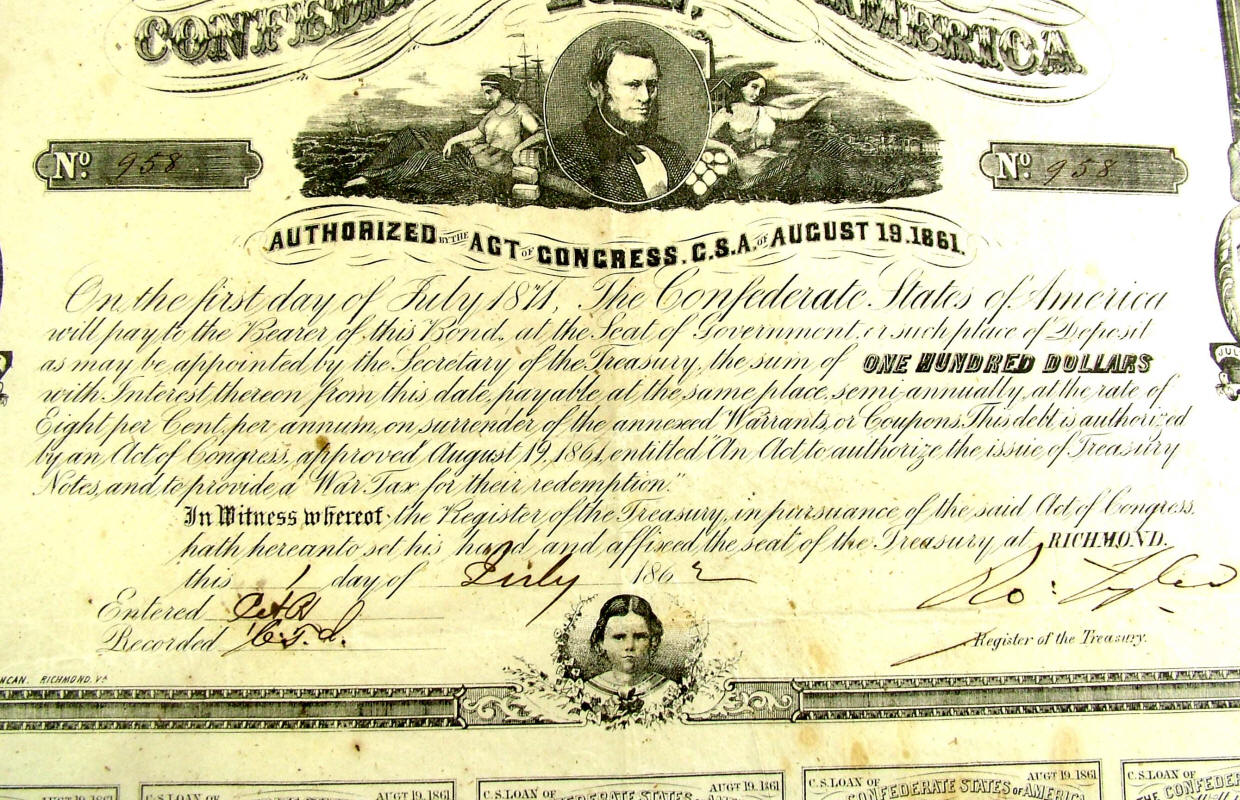 AMERICA
Nº. 958
Nº. 958
AUTHORIZED BY THE ACT OF CONGRESS. C.S.A. OF AUGUST 19.1861.
On the first day of July 1871, The Confederate States of America
will pay to the Bearer of this Bond, at the Seat of Government, or such place of Deposit
as may be appointed by the Secretary of the Treasury, the sum of ONE HUNDRED DOLLARS
with Interest thereon from this date, payable at the same place, semi-annually, at the rate of
Eight per Cent, per annum, on surrender of the annexed Warrants, or Coupons. This debt is authorized
by an Act of Congress, approved August 19, 1861, entitled "An Act to authorize the issue of Treasury
Notes, and to provide a War Tax for their redemption."
In Witness whereof the Register of the Treasury, in pursuance of the said Act of Congress,
hath hereunto set his hand, and affixed the seal of the Treasury at RICHMOND.
this 1 day of July 1862
Ro: Tyler
Entered
Recorded
Register of the Treasury.
RICHMOND. VA
AUGT 19. 1861
AUGT 19. 1861
AUGT 19. 1861
C.S. LOAN OF AUGT 19. 1861
CONFEDERATE STATES OF AMERICA
C.S. LOAN OF
THE CONFEDER